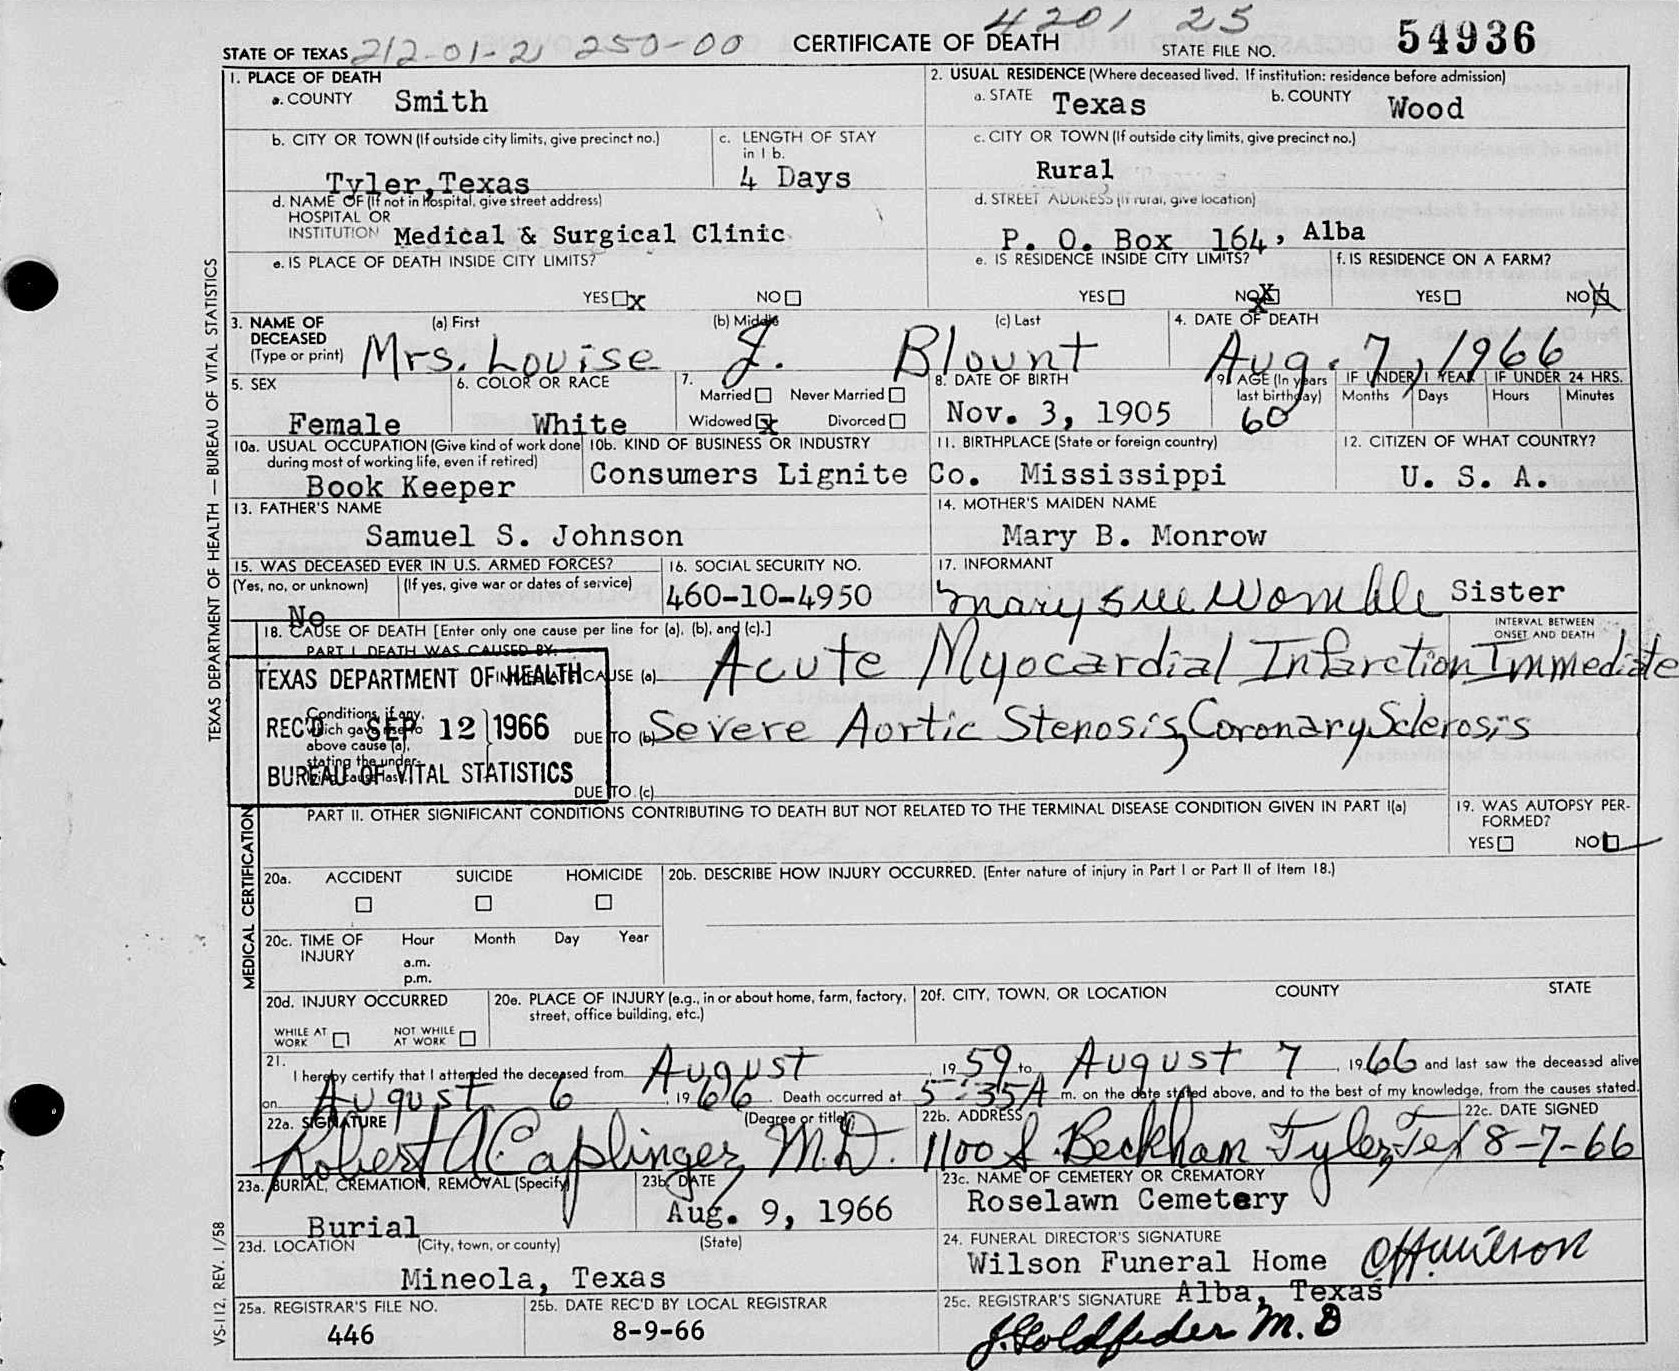 4201 25
STATE OF TEXAS 212-01-2 250-00 CERTIFICATE OF DEATH STATE FILE NO. 54936
1. PLACE OF DEATH
a. COUNTY Smith
2. USUAL RESIDENCE (Where deceased lived. If institution: residence before admission)
a. STATE Texas b. COUNTY Wood
b. CITY OR TOWN (If outside city limits, give precinct no.)
Tyler, Texas
c. LENGTH OF STAY
in 1 b.
4 Days
c. CITY OR TOWN (If outside city limits, give precinct no.)
Rural
d. NAME OF (If not in hospital, give street address)
HOSPITAL OR
INSTITUTION Medical & Surgical Clinic
d. STREET ADDRESS (If rural, give location)
P. O. Box 164, Alba
e. IS PLACE OF DEATH INSIDE CITY LIMITS?
YES x NO
e. IS RESIDENCE INSIDE CITY LIMITS?
YES NO X
f. IS RESIDENCE ON A FARM?
YES NO X
3. NAME OF
DECEASED
(Type or print)
(a) First (b) Middle (c) Last
Mrs. Louise J. Blount
4. DATE OF DEATH
Aug. 7, 1966
5. SEX
Female
6. COLOR OR RACE
White
7.
Married Never Married
Widowed x Divorced
8. DATE OF BIRTH
Nov. 3, 1905
9. AGE (In years
last birthday)
60
IF UNDER 1 YEAR IF UNDER 24 HRS.
Months Days Hours Minutes
10a. USUAL OCCUPATION (Give kind of work done
during most of working life, even if retired)
Book Keeper
10b. KIND OF BUSINESS OR INDUSTRY
Consumers Lignite Co.
11. BIRTHPLACE (State or foreign country)
Mississippi
12. CITIZEN OF WHAT COUNTRY?
U. S. A.
13. FATHER'S NAME
Samuel S. Johnson
14. MOTHER'S MAIDEN NAME
Mary B. Monrow
15. WAS DECEASED EVER IN U.S. ARMED FORCES?
(Yes, no, or unknown) (If yes, give war or dates of service)
No
16. SOCIAL SECURITY NO.
460-10-4950
17. INFORMANT
Mary Sue Womble Sister
18. CAUSE OF DEATH [Enter only one cause per line for (a), (b), and (c).]
INTERVAL BETWEEN
ONSET AND DEATH
PART I. DEATH WAS CAUSED BY:
IMMEDIATE CAUSE (a) Acute Myocardial Infarction Immediate
Conditions, if any,
which gave rise to
above cause (a),
stating the under-
lying cause last.
DUE TO (b) Severe Aortic Stenosis, Coronary Sclerosis
DUE TO (c)
TEXAS DEPARTMENT OF HEALTH
REC'D SEP 12 1966
BUREAU OF VITAL STATISTICS
PART II. OTHER SIGNIFICANT CONDITIONS CONTRIBUTING TO DEATH BUT NOT RELATED TO THE TERMINAL DISEASE CONDITION GIVEN IN PART I(a)
19. WAS AUTOPSY PER-
FORMED?
YES NO
20a. ACCIDENT SUICIDE HOMICIDE
20b. DESCRIBE HOW INJURY OCCURRED. (Enter nature of injury in Part I or Part II of Item 18.)
20c. TIME OF
INJURY
Hour Month Day Year
a.m.
p.m.
20d. INJURY OCCURRED
WHILE AT
WORK
NOT WHILE
AT WORK
20e. PLACE OF INJURY (e.g., in or about home, farm, factory,
street, office building, etc.)
20f. CITY, TOWN, OR LOCATION COUNTY STATE
21.
I hereby certify that I attended the deceased from August, 1959 to August 7, 1966 and last saw the deceased alive
on August 6, 1966. Death occurred at 5:35A m. on the date stated above, and to the best of my knowledge, from the causes stated.
22a. SIGNATURE (Degree or title)
Robert A Caplinger, M.D.
22b. ADDRESS
1100 S. Beckham Tyler, Tex
22c. DATE SIGNED
8-7-66
23a. BURIAL, CREMATION, REMOVAL (Specify)
Burial
23b. DATE
Aug. 9, 1966
23c. NAME OF CEMETERY OR CREMATORY
Roselawn Cemetery
23d. LOCATION (City, town, or county) (State)
Mineola, Texas
24. FUNERAL DIRECTOR'S SIGNATURE
Wilson Funeral Home
Alba, Texas
25a. REGISTRAR'S FILE NO.
446
25b. DATE REC'D BY LOCAL REGISTRAR
8-9-66
25c. REGISTRAR'S SIGNATURE
J. Goldfeder M.D
TEXAS DEPARTMENT OF HEALTH — BUREAU OF VITAL STATISTICS
MEDICAL CERTIFICATION
VS-112, REV. 1/58